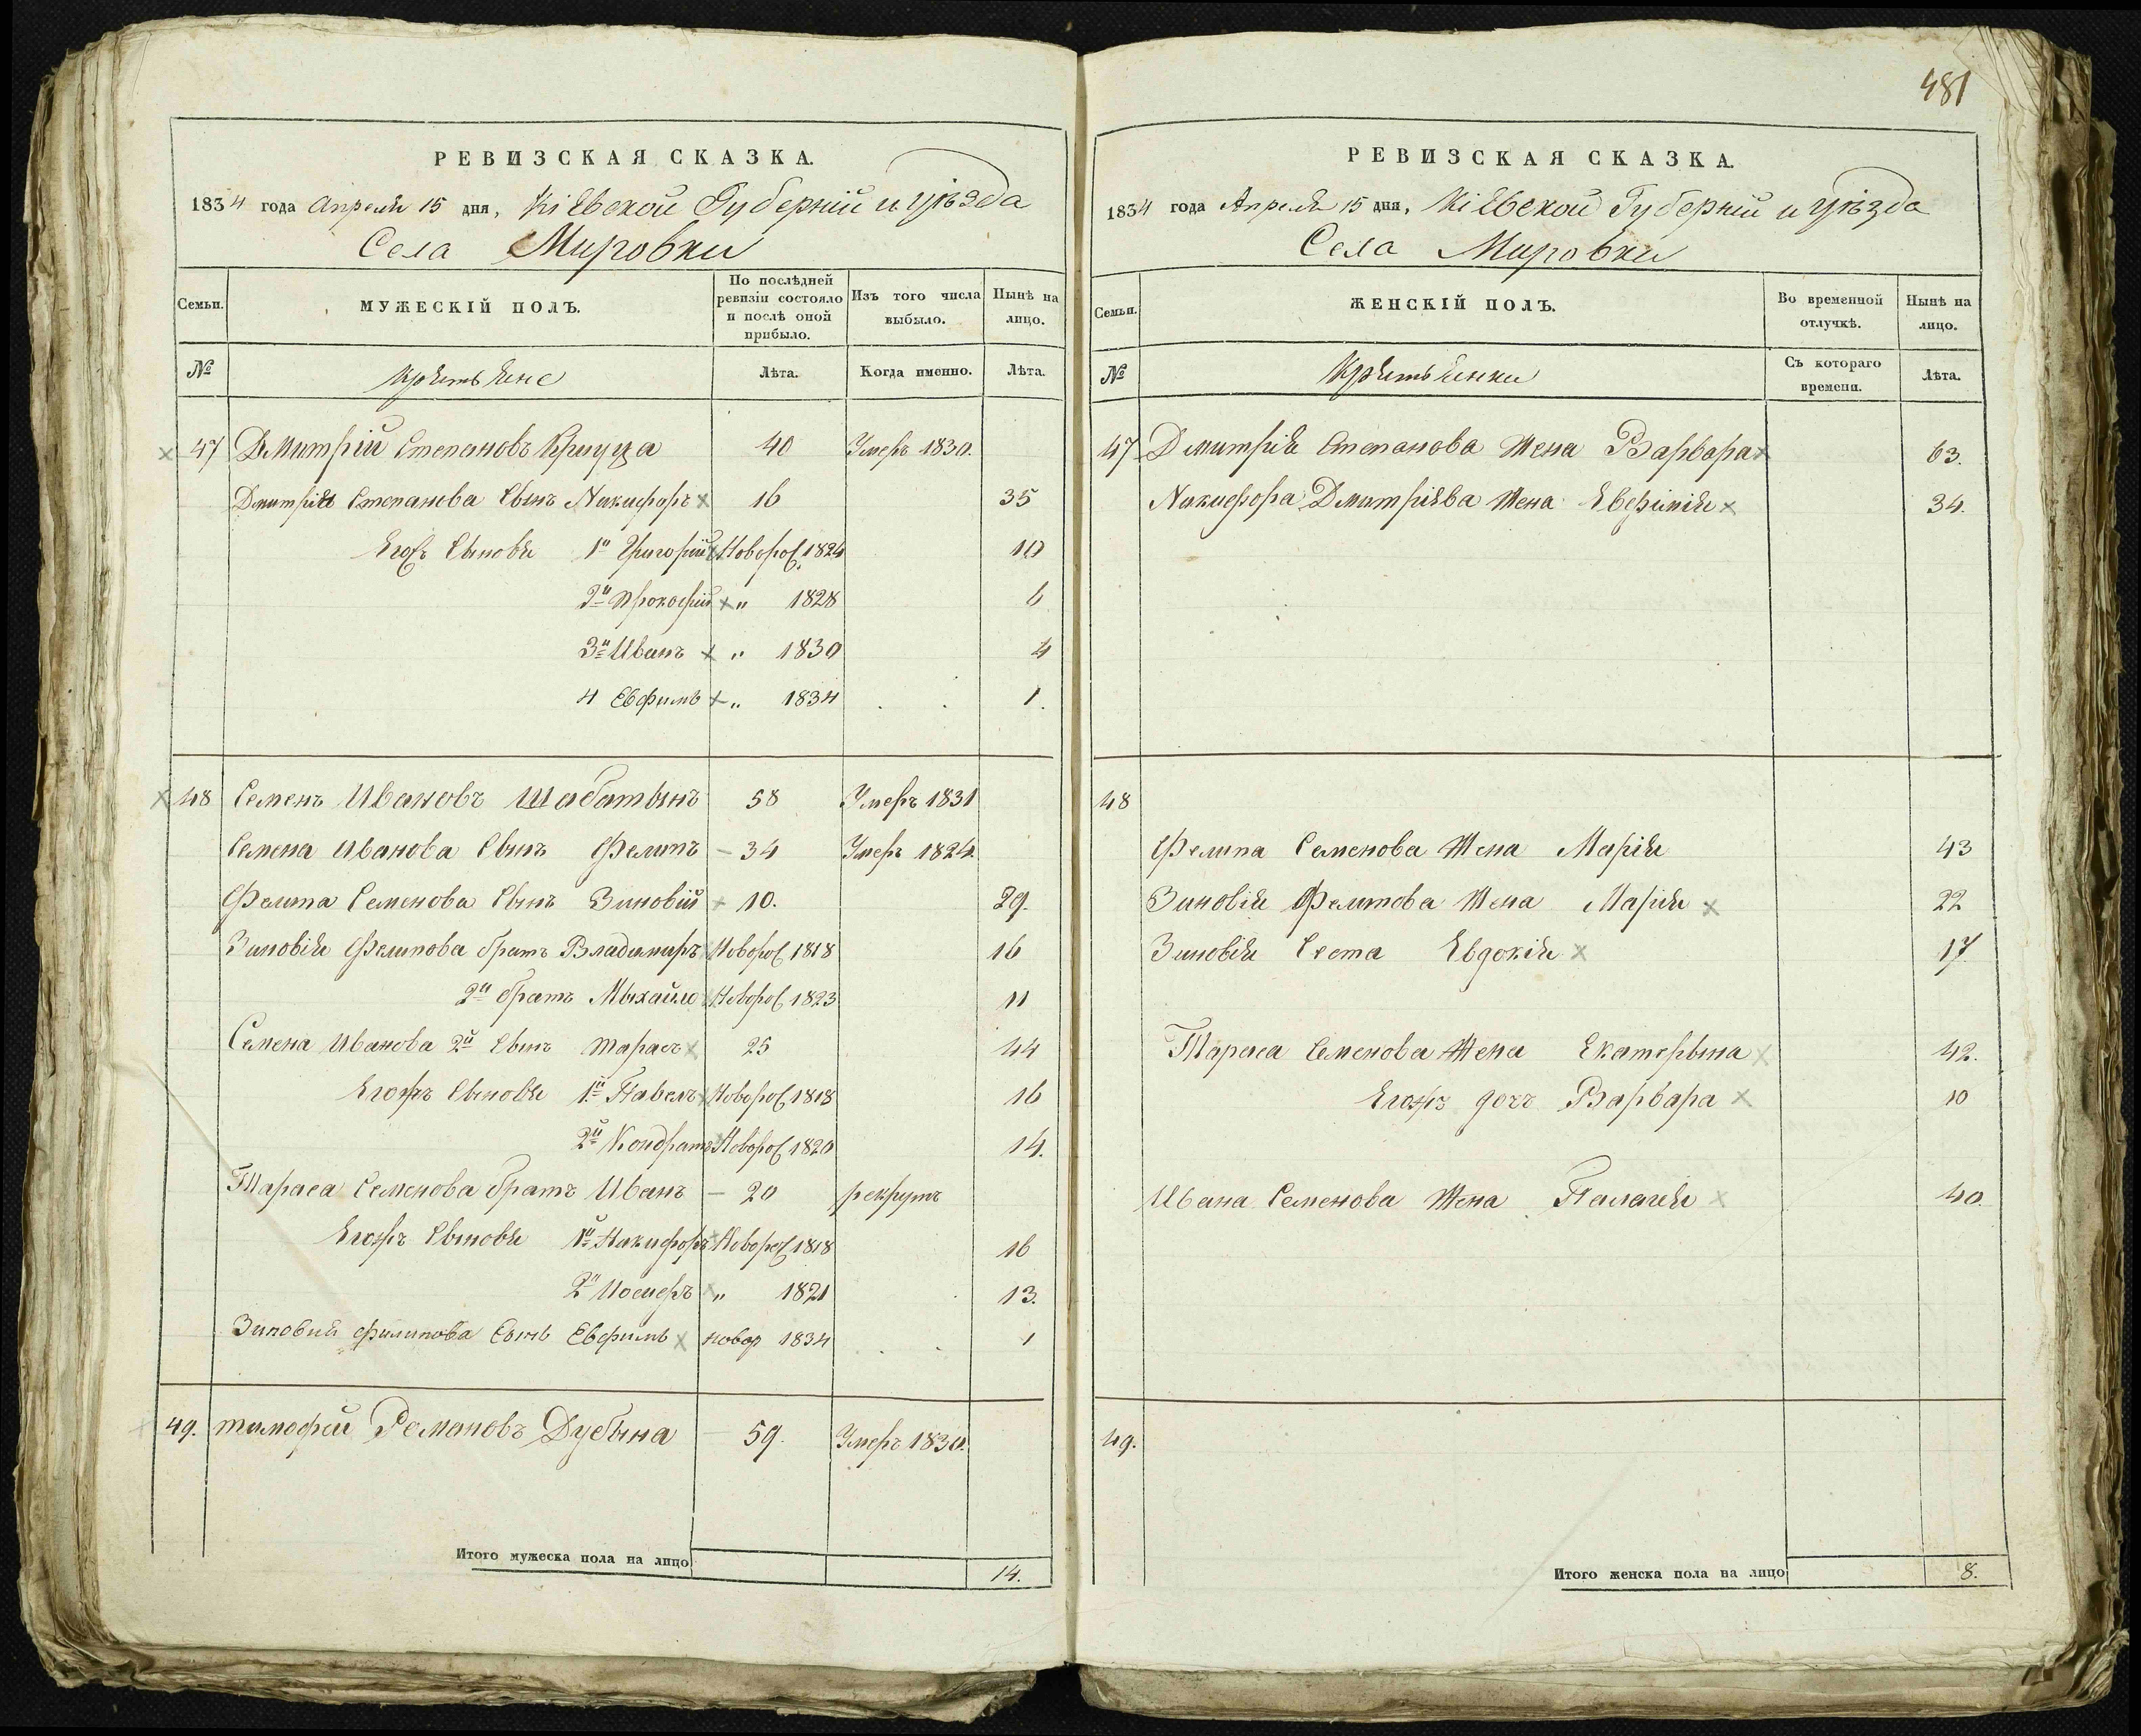 РЕВИЗСКАЯ СКАЗКА.
1834 года Апреля 15 дня, Кіевской Губерніи и уѣзда
Села Мировки
Семьи.
МУЖЕСКІЙ ПОЛЪ.
По послѣдней ревизіи состояло и послѣ оной прибыло.
Изъ того числа выбыло.
Нынѣ на лицо.
№
Крѣстьяне
Лѣта.
Когда именно.
Лѣта.
47 Дмитрій Степановъ Кришуца 40 Умеръ 1830.
Дмитрія Степанова Сынъ Никифоръ 16 35
Егожъ Сыновя 1й Григорій Новорож 1824 10
2й Прокофій " 1828 6
3й Иванъ " 1830 4
4 Евфимъ " 1834 1.
48 Семенъ Ивановъ Шабатынъ 58 Умеръ 1831
Семена Иванова Сынъ Фелипъ 34 Умеръ 1824.
Фелипа Семенова Сынъ Зиновій 10. 29.
Зиновія Фелипова братъ Владимиръ Новорож 1818 16
2й братъ Мыхайло Новорож 1823 11
Семена Иванова 2й Сынъ Тарасъ 25 44
Егожъ Сыновя 1й Павелъ Новорож 1818 16
2й Кондратъ Новорож 1820 14.
Тараса Семенова братъ Иванъ 20 рекрутъ
Егожъ Сыновя 1й Никифоръ Новорож 1818 16
2й Иосифъ " 1821 13.
Зиновия Филипова Сынъ Евфимъ новор 1834 1
49. Тимофей Романовъ Дубына 59. Умеръ 1830.
Итого мужеска пола на лицо 14.
481
РЕВИЗСКАЯ СКАЗКА.
1834 года Апреля 15 дня, Кіевской Губерніи и уѣзда
Села Мировки
Семьи.
ЖЕНСКІЙ ПОЛЪ.
Во временной отлучкѣ.
Нынѣ на лицо.
№
Крѣстьянки
Съ котораго времени.
Лѣта.
47 Дмитрія Степанова Жена Варвара 63.
Никифора Дмитріева Жена Евфимія 34.
48
Фелипа Семенова Жена Марія 43
Зиновія Фелипова Жена Марія 22
Зиновія Сестра Евдокія 17.
Тараса Семенова Жена Екатерына 42.
Егожъ дочь Варвара 10
Ивана Семенова Жена Палагія 40.
49.
Итого женска пола на лицо 8.